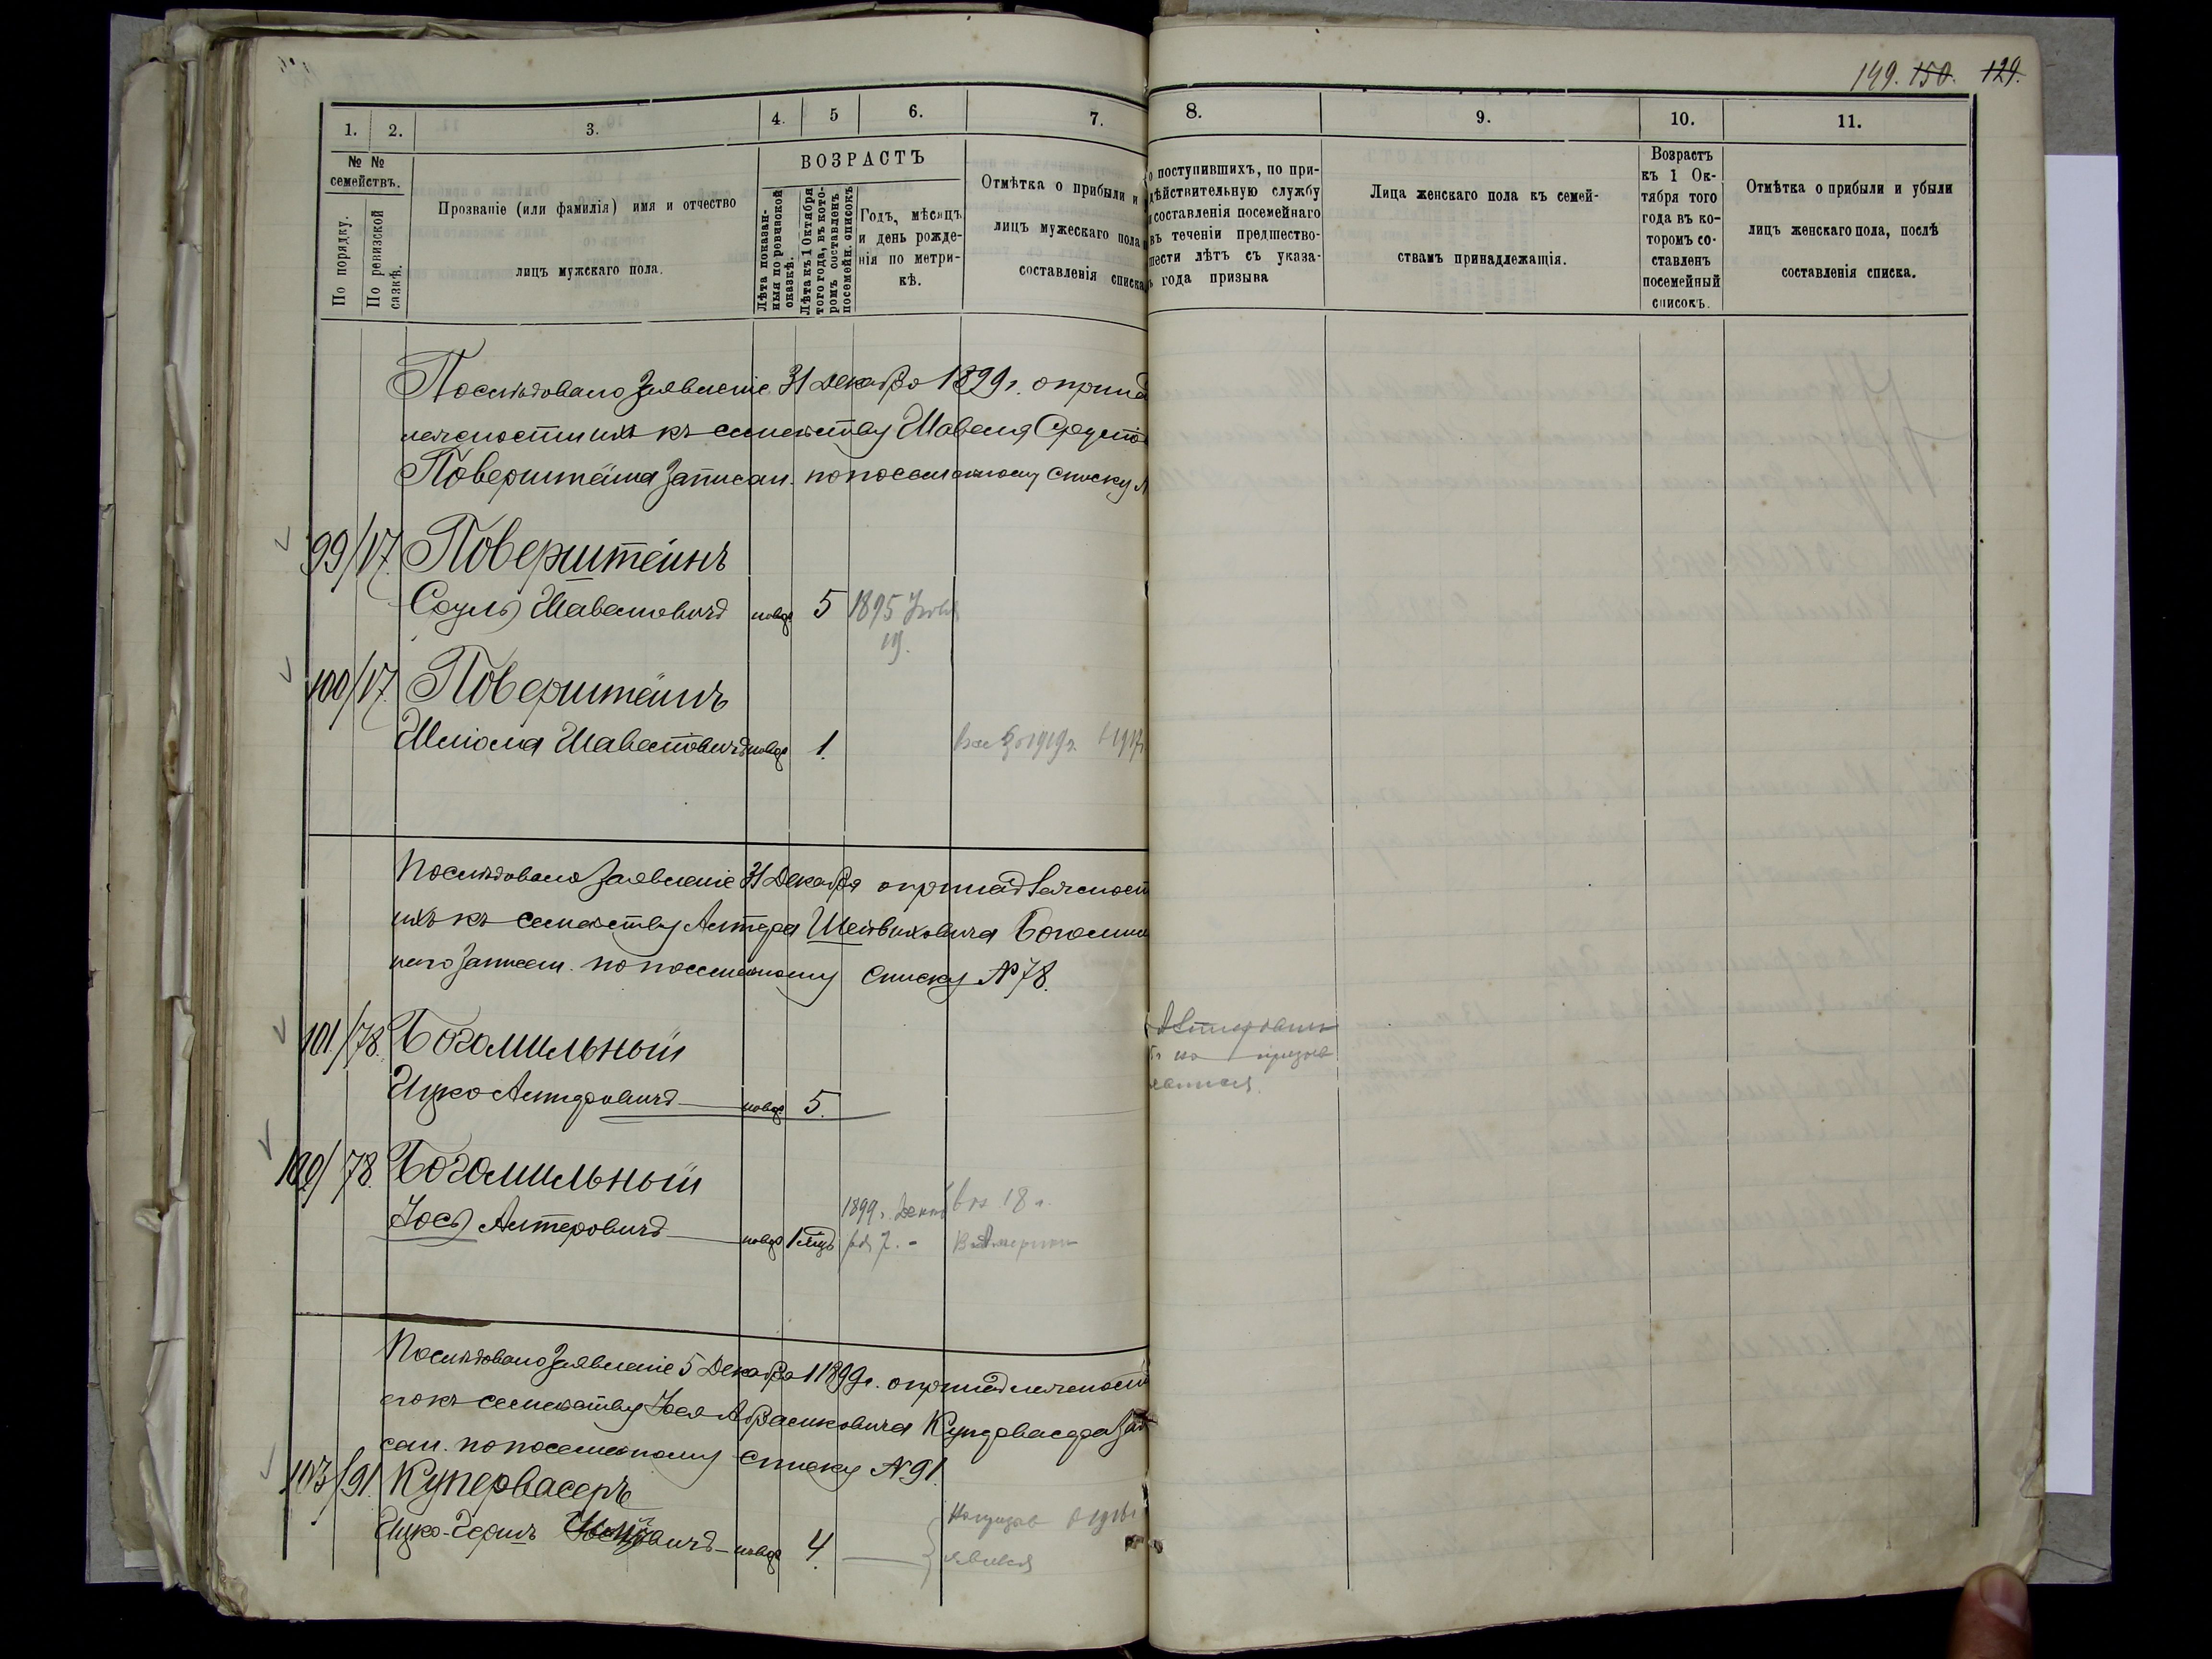 149. 150. 129.
1. 2. 3. 4. 5 6. 7. 8. 9. 10. 11.
№ №
семействъ.
По порядку.
По ревизской
сказкѣ.
Прозваніе (или фамилія) имя и отчество
лицъ мужскаго пола.
ВОЗРАСТЪ
Лѣта показан-
ныя по ревизской
сказкѣ.
Лѣта къ 1 Октября
того года, въ кото-
ромъ составленъ
посемейн. списокъ
Годъ, мѣсяцъ
и день рожде-
нія по метри-
кѣ.
Отмѣтка о прибыли и
лицъ мужескаго пола
составленія списка
о поступившихъ, по при-
дѣйствительную службу
и составленія посемейнаго
въ теченіи предшество-
шести лѣтъ съ указа-
ь года призыва
Лица женскаго пола къ семей-
ствамъ принадлежащія.
Возрастъ
къ 1 Ок-
тября того
года въ ко-
торомъ со-
ставленъ
посемейный
списокъ.
Отмѣтка о прибыли и убыли
лицъ женскаго пола, послѣ
составленія списка.
Послѣдовало Заявленіе 31 Декабря 1899 г. о принад
лежности ихъ къ семейству Шавеля
Поверштейна Записан. по посемейному списку №
99/17. Поверштейнъ
Сруль Шавелевичъ новор 5 1895
19.
100/17. Поверштейнъ
Шлiома Шавелевичъ новор 1. 1919 г. 1917
Послѣдовало Заявленіе 31 Декабря о принадлежност
ихъ къ семейству Алтера Шейвиховича Богомиль
наго Записан. по посемейному списку № 78.
101/78. Богомильный
Ицко Алтеровичъ новор 5.
102/78. Богомильный
Іось Алтеровичъ новор 1 мѣц 1899 г. Декаб
ря 7. - 18 г.
В Америки
Послѣдовало Заявленіе 5 Декабря 1899 г. о принадлежност
его къ семейству Іося Абрамковича Купервасера Зап
сан. по посемейному списку № 91.
103/91. Купервасеръ
Ицко-Гершъ новор 4. 1916 г
явился